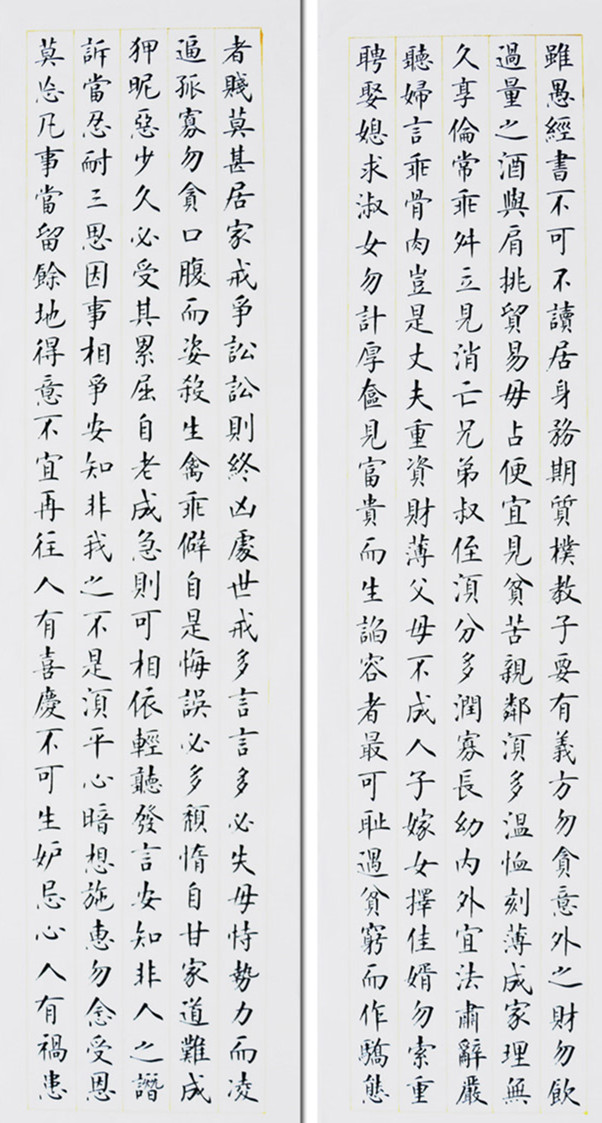 雖愚經書不可不讀居身務期質樸教子要有義方勿貪意外之財勿飲
過量之酒與肩挑貿易毋占便宜見貧苦親鄰須多溫恤刻薄成家理無
久享倫常乖舛立見消亡兄弟叔侄須分多潤寡長幼內外宜法肅辭嚴
聽婦言乖骨肉豈是丈夫重資財薄父母不成人子嫁女擇佳婿勿索重
聘娶媳求淑女勿計厚奩見富貴而生諂容者最可耻遇貧窮而作驕態
者賤莫甚居家戒爭訟訟則終凶處世戒多言言多必失毋恃勢力而凌
逼孤寡勿貪口腹而姿殺生禽乖僻自是悔誤必多頹惰自甘家道難成
狎昵惡少久必受其累屈自老成急則可相依輕聽發言安知非人之譖
訴當忍耐三思因事相爭安知非我之不是須平心暗想施惠勿念受恩
莫忘凡事當留餘地得意不宜再往人有喜慶不可生妒忌心人有禍患